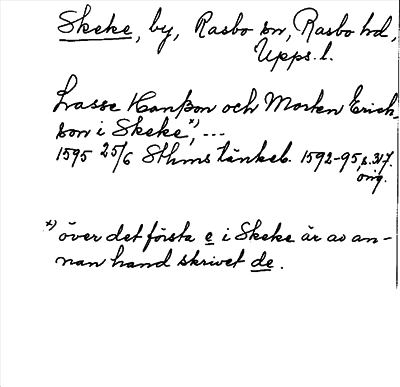 Skeke, by, Rasbo sn, Rasbo hd,
Upps. l.
Lasse Hanßon och Morten Erich-
son i Skeke x), ---
1595 25/6 Sthms tänkeb. 1592-95, s. 317.
orig.
x) över det första e i Skeke är av an-
nan hand skrivet de.